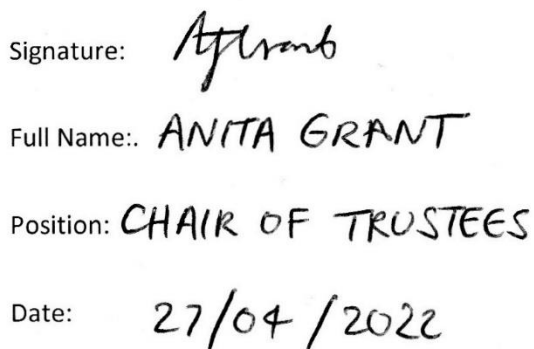 Signature: AJGrant
Full Name:. ANITA GRANT
Position: CHAIR OF TRUSTEES
Date: 27/04/2022